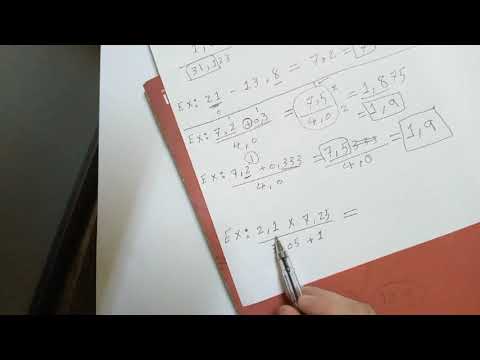 31,123
Ex: 21 - 13,8 = 7,2 =
Ex: 7,2 + 0,3 / 4,0 = 7,5 / 4,0 = 1,875
1,9
Ex: 7,2 + 0,333 / 4,0 = 7,5333 / 4,0 = 1,9
Ex: 2,1 x 7,25 / ,05 + 1 =